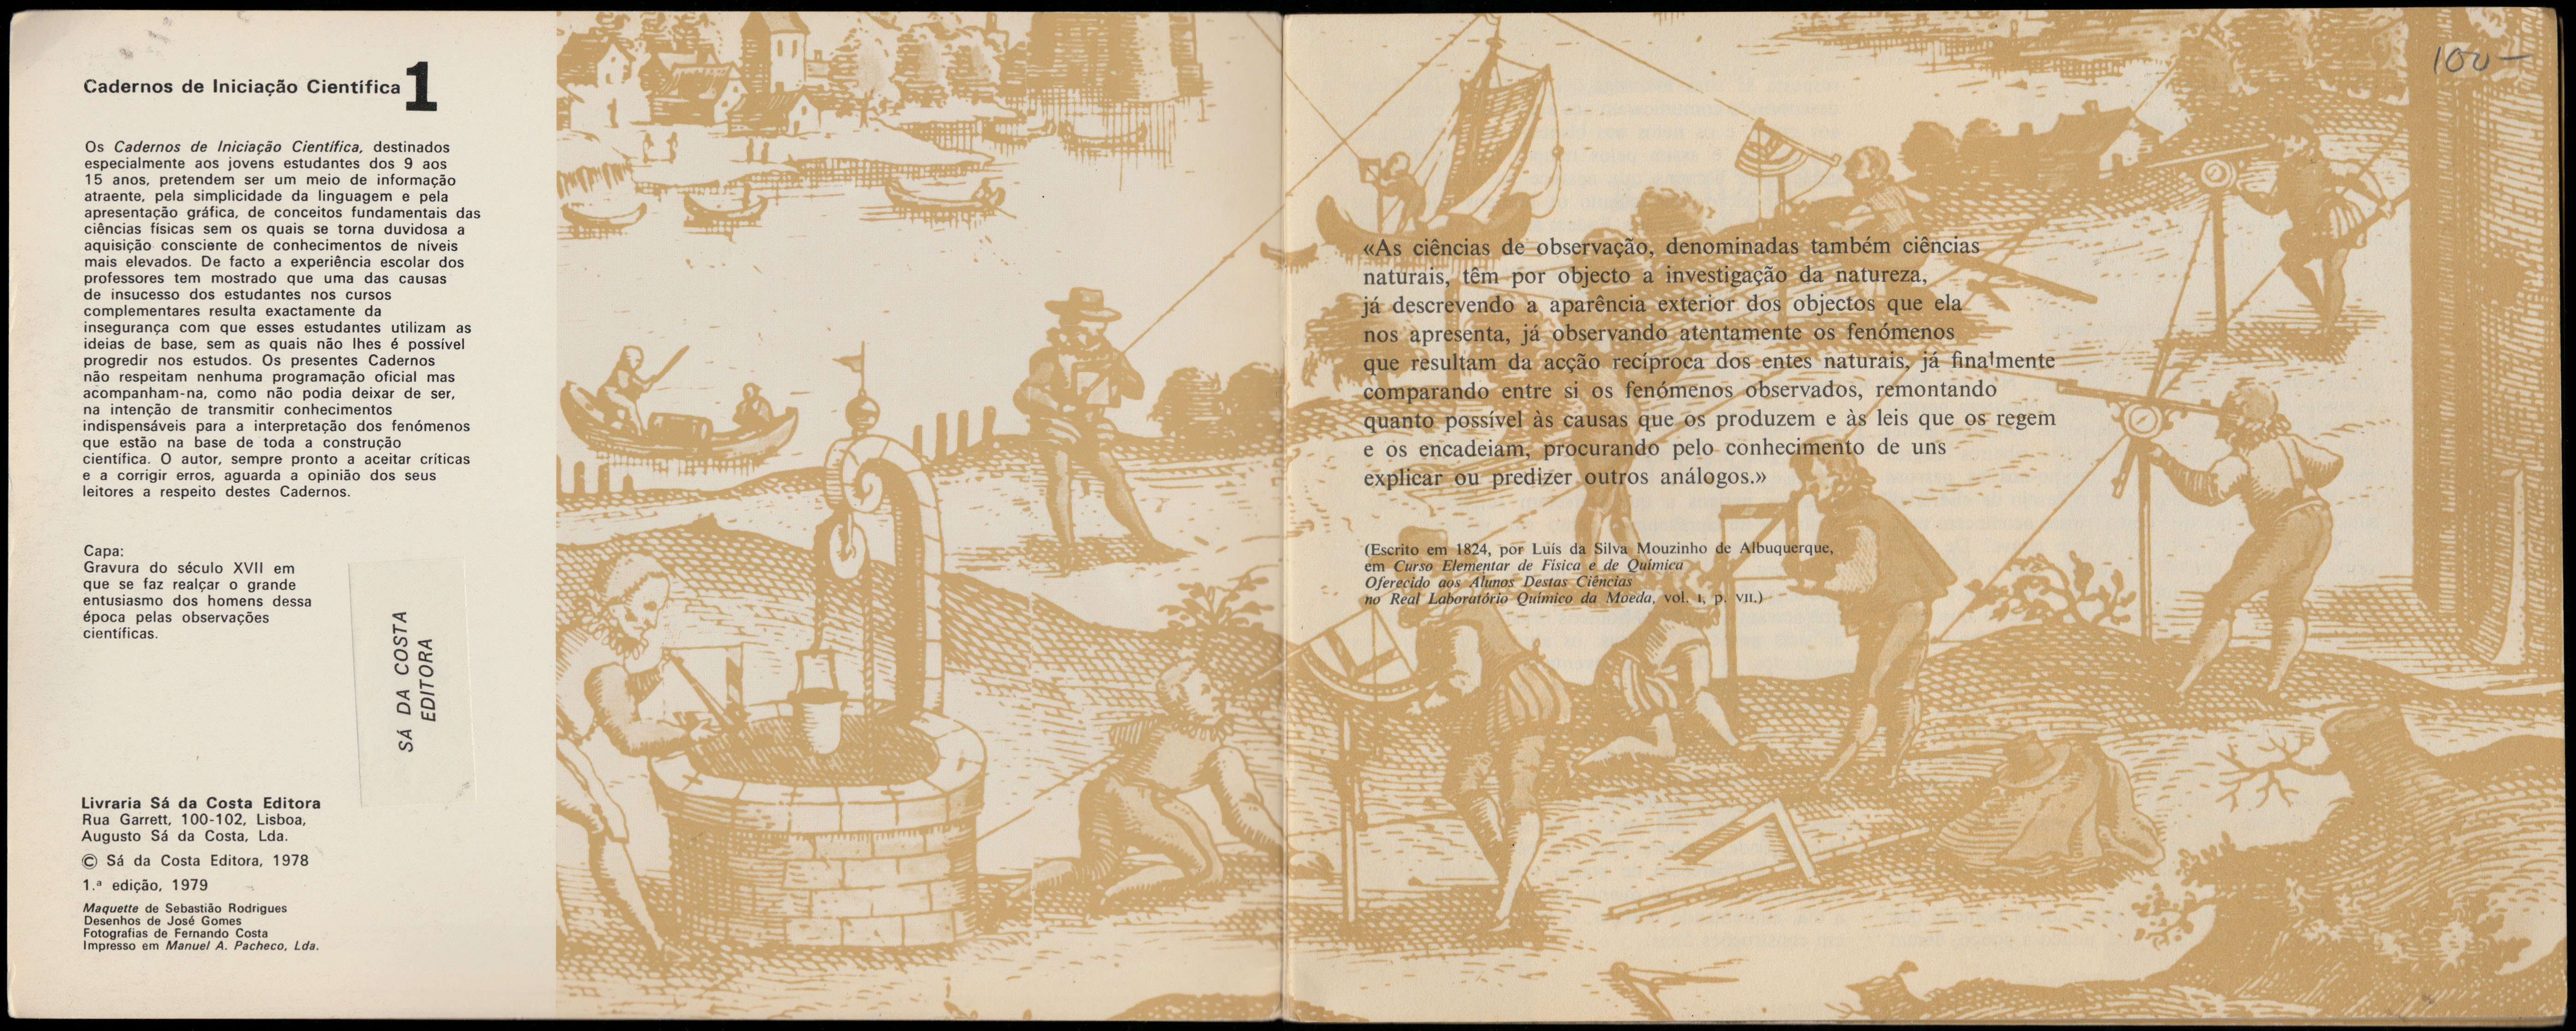 Cadernos de Iniciação Científica 1
Os Cadernos de Iniciação Científica, destinados
especialmente aos jovens estudantes dos 9 aos
15 anos, pretendem ser um meio de informação
atraente, pela simplicidade da linguagem e pela
apresentação gráfica, de conceitos fundamentais das
ciências físicas sem os quais se torna duvidosa a
aquisição consciente de conhecimentos de níveis
mais elevados. De facto a experiência escolar dos
professores tem mostrado que uma das causas
de insucesso dos estudantes nos cursos
complementares resulta exactamente da
insegurança com que esses estudantes utilizam as
ideias de base, sem as quais não lhes é possível
progredir nos estudos. Os presentes Cadernos
não respeitam nenhuma programação oficial mas
acompanham-na, como não podia deixar de ser,
na intenção de transmitir conhecimentos
indispensáveis para a interpretação dos fenómenos
que estão na base de toda a construção
científica. O autor, sempre pronto a aceitar críticas
e a corrigir erros, aguarda a opinião dos seus
leitores a respeito destes Cadernos.
Capa:
Gravura do século XVII em
que se faz realçar o grande
entusiasmo dos homens dessa
época pelas observações
científicas.
SÁ DA COSTA
EDITORA
Livraria Sá da Costa Editora
Rua Garrett, 100-102, Lisboa,
Augusto Sá da Costa, Lda.
© Sá da Costa Editora, 1978
1.ª edição, 1979
Maquette de Sebastião Rodrigues
Desenhos de José Gomes
Fotografias de Fernando Costa
Impresso em Manuel A. Pacheco, Lda.
100-
«As ciências de observação, denominadas também ciências
naturais, têm por objecto a investigação da natureza,
já descrevendo a aparência exterior dos objectos que ela
nos apresenta, já observando atentamente os fenómenos
que resultam da acção recíproca dos entes naturais, já finalmente
comparando entre si os fenómenos observados, remontando
quanto possível às causas que os produzem e às leis que os regem
e os encadeiam, procurando pelo conhecimento de uns
explicar ou predizer outros análogos.»
(Escrito em 1824, por Luís da Silva Mouzinho de Albuquerque,
em Curso Elementar de Física e de Química
Oferecido aos Alunos Destas Ciências
no Real Laboratório Químico da Moeda, vol. I, p. VII.)